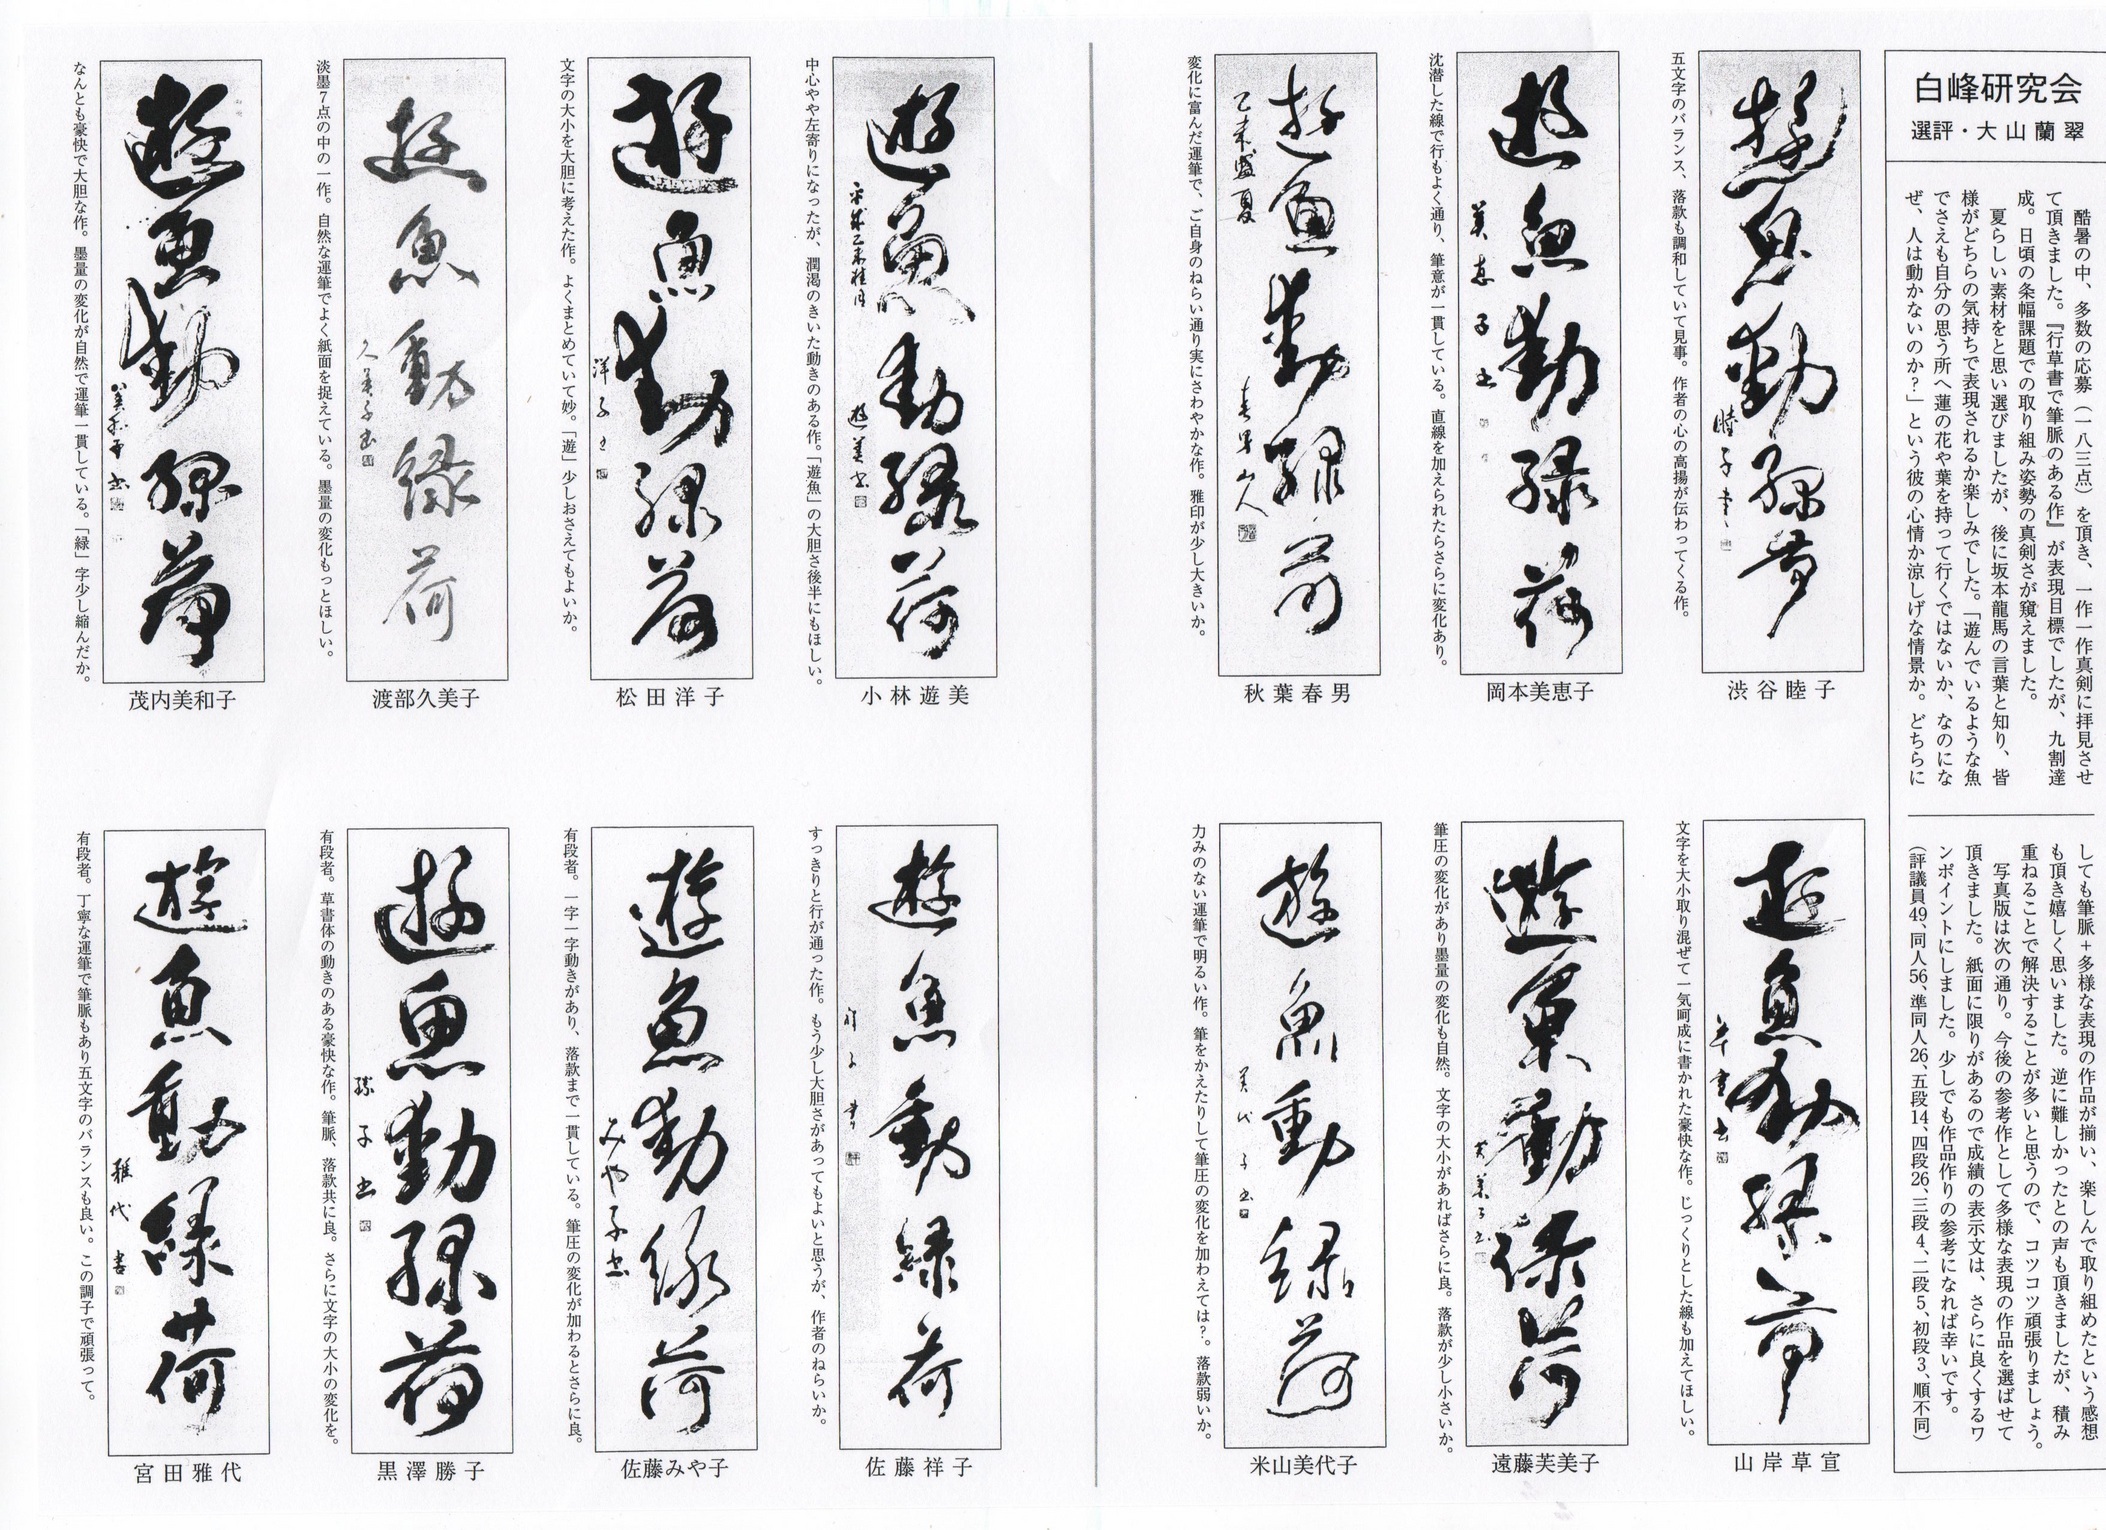 白峰研究会
選評・大山蘭翠
酷暑の中、多数の応募（一八三点）を頂き、一作一作真剣に拝見させ
て頂きました。『行草書で筆脈のある作』が表現目標でしたが、九割達
成。日頃の条幅課題での取り組み姿勢の真剣さが窺えました。
夏らしい素材をと思い選びましたが、後に坂本龍馬の言葉と知り、皆
様がどちらの気持ちで表現されるか楽しみでした。「遊んでいるような魚
でさえも自分の思う所へ蓮の花や葉を持って行くではないか、なのにな
ぜ、人は動かないのか？」という彼の心情か涼しげな情景か。どちらに
しても筆脈＋多様な表現の作品が揃い、楽しんで取り組めたという感想
も頂き嬉しく思いました。逆に難しかったとの声も頂きましたが、積み
重ねることで解決することが多いと思うので、コツコツ頑張りましょう。
写真版は次の通り。今後の参考作として多様な表現の作品を選ばせて
頂きました。紙面に限りがあるので成績の表示文は、さらに良くするワ
ンポイントにしました。少しでも作品作りの参考になれば幸いです。
（評議員49、同人56、準同人26、五段14、四段26、三段4、二段5、初段3、順不同）
遊魚動緑荷
睦子書
渋谷睦子
五文字のバランス、落款も調和していて見事。作者の心の高揚が伝わってくる作。
遊魚動緑荷
美恵子書
岡本美恵子
沈潜した線で行もよく通り、筆意が一貫している。直線を加えられたらさらに変化あり。
遊魚動緑荷
乙未盛夏
春男
秋葉春男
変化に富んだ運筆で、ご自身のねらい通り実にさわやかな作。雅印が少し大きいか。
遊魚動緑荷
遊美書
小林遊美
中心やや左寄りになったが、潤渇のきいた動きのある作。「遊魚」の大胆さ後半にもほしい。
遊魚動緑荷
洋子書
松田洋子
文字の大小を大胆に考えた作。よくまとめていて妙。「遊」少しおさえてもよいか。
遊魚動緑荷
久美子書
渡部久美子
淡墨7点の中の一作。自然な運筆でよく紙面を捉えている。墨量の変化もっとほしい。
遊魚動緑荷
美和子書
茂内美和子
なんとも豪快で大胆な作。墨量の変化が自然で運筆一貫している。「緑」字少し縮んだか。
遊魚動緑荷
草宣書
山岸草宣
文字を大小取り混ぜて一気呵成に書かれた豪快な作。じっくりとした線も加えてほしい。
遊魚動緑荷
芙美子書
遠藤芙美子
筆圧の変化があり墨量の変化も自然。文字の大小があればさらに良。落款が少し小さいか。
遊魚動緑荷
美代子書
米山美代子
力みのない運筆で明るい作。筆をかえたりして筆圧の変化を加わえては？。落款弱いか。
遊魚動緑荷
祥子書
佐藤祥子
すっきりと行が通った作。もう少し大胆さがあってもよいと思うが、作者のねらいか。
遊魚動緑荷
みや子書
佐藤みや子
有段者。一字一字動きがあり、落款まで一貫している。筆圧の変化が加わるとさらに良。
遊魚動緑荷
勝子書
黒澤勝子
有段者。草書体の動きのある豪快な作。筆脈、落款共に良。さらに文字の大小の変化を。
遊魚動緑荷
雅代書
宮田雅代
有段者。丁寧な運筆で筆脈もあり五文字のバランスも良い。この調子で頑張って。